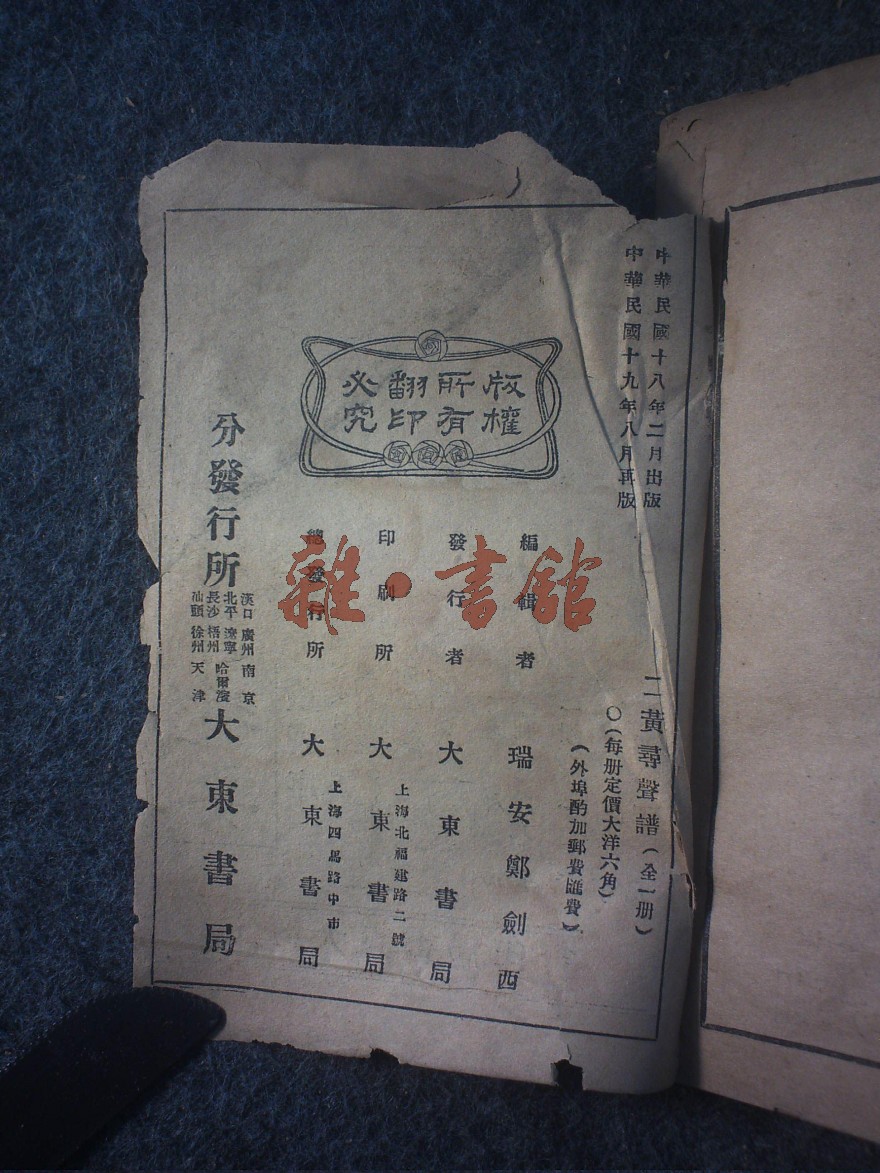 中華民國十八年二月出版
中華民國十九年八月再版
二黃尋聲譜(全一册)
○(每册定價大洋六角)
(外埠酌加郵費匯費)
版權
所有
翻印
必究
編輯者 瑞安鄭劍西
發行者 大東書局
印刷所 上海北福建路二號 大東書局
總發行所 上海四馬路中市 大東書局
分發行所
漢口 廣州 南京
北平 遼寧 哈爾濱
長沙 梧州
汕頭 徐州 天津
大東書局
雜·書館